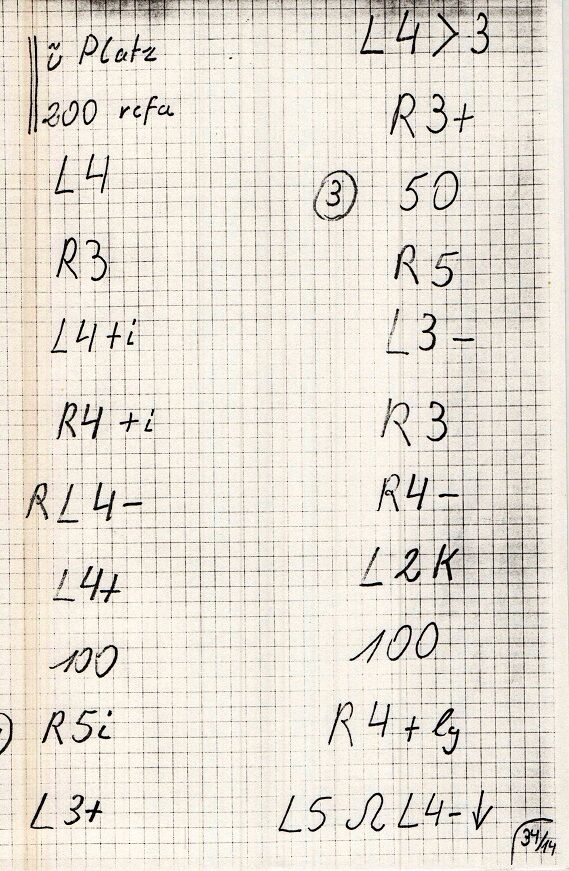 ü Platz
200 refa
L4
R3
L4+i
R4+i
RL4-
L4+
100
R5i
L3+
L4>3
R3+
③ 50
R5
L3-
R3
R4-
L2K
100
R4+lg
L5 Ω L4-↓
34/14